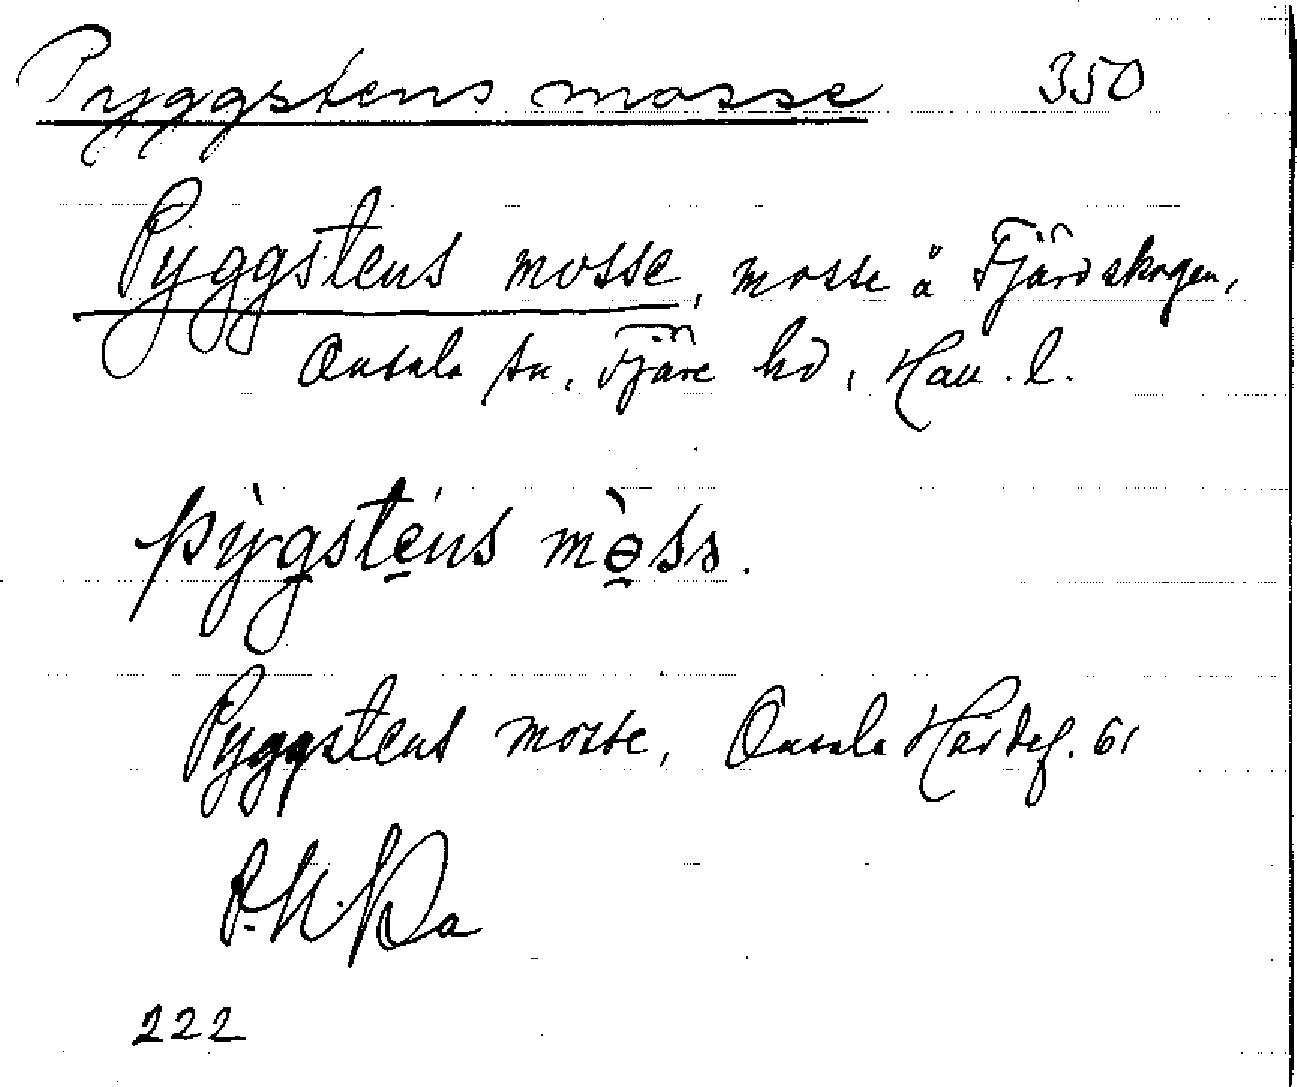 Pyggstens mosse 350
Pyggstens mosse, mosse å Fjärdskogen,
Onsala sn, Fjäre hd, Hall. l.
pỳgsténs mòss.
Pyggstens mosse, Onsala Hardef. 61
222